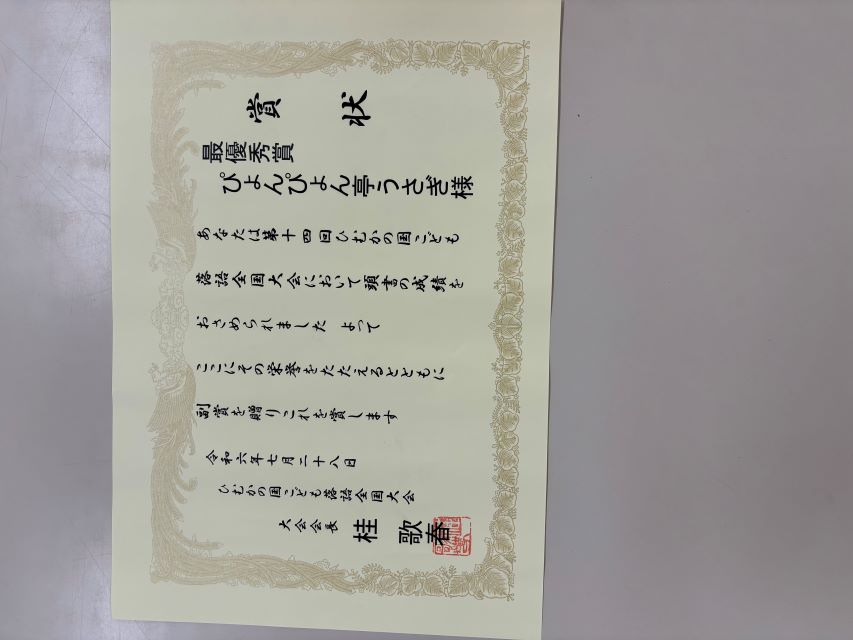 賞状
最優秀賞
ぴょんぴょん亭うさぎ様
あなたは第十四回ひむかの国こども
落語全国大会において頭書の成績を
おさめられました よって
ここにその栄誉をたたえるとともに
副賞を贈りこれを賞します
令和六年七月二十八日
ひむかの国こども落語全国大会
大会会長 桂 歌春